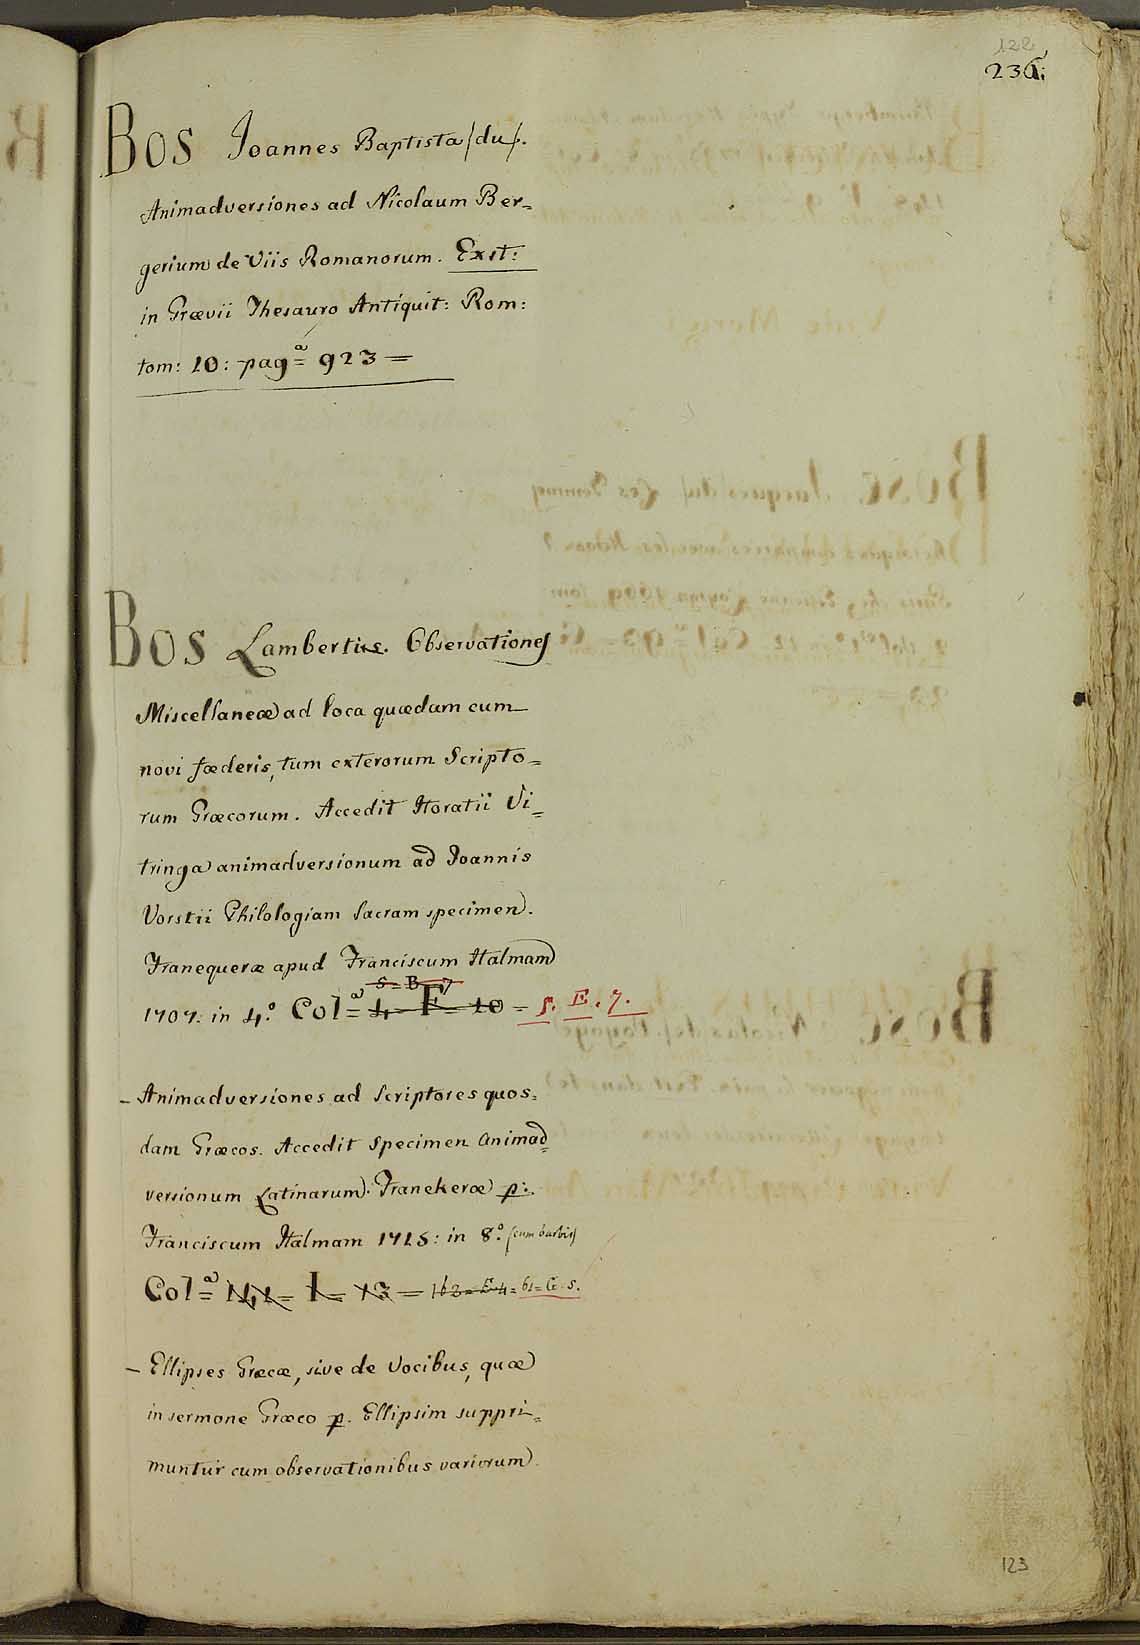 122
236.
BOS Joannes Baptista (du).
Animadversiones ad Nicolaum Ber=
gerium de Viis Romanorum. Exst:
in Grævii Thesauro Antiquit: Rom:
tom: 10: pag=ᵃ 923 =
BOS Lambertus. Observationes
Miscellaneæ ad loca quædam cum
novi fœderis, tum exterorum Scripto=
rum Græcorum. Accedit Horatii Vi=
tringa animadversionum ad Joannis
Vorstii Philologiam Sacram specimen.
Franequeræ apud Franciscum Halmam
5 = B = 7
1707: in 4.° Col=ᵃ 4 = F = 10 = 5. E. 7.
- Animadversiones ad Scriptores quos=
dam Græcos. Accedit Specimen Animad=
versionum Latinarum. Franekeræ p:.
Franciscum Halmam 1715: in 8.° (cum barbis)
Col=ᵃ 141 = I = 13 = 162 = E 4 = 61 = G = 5.
- Ellipses Græcæ, sive de Vocibus, quæ
in sermone Græco p. Ellipsim suppri=
muntur cum observationibus variorum.
123